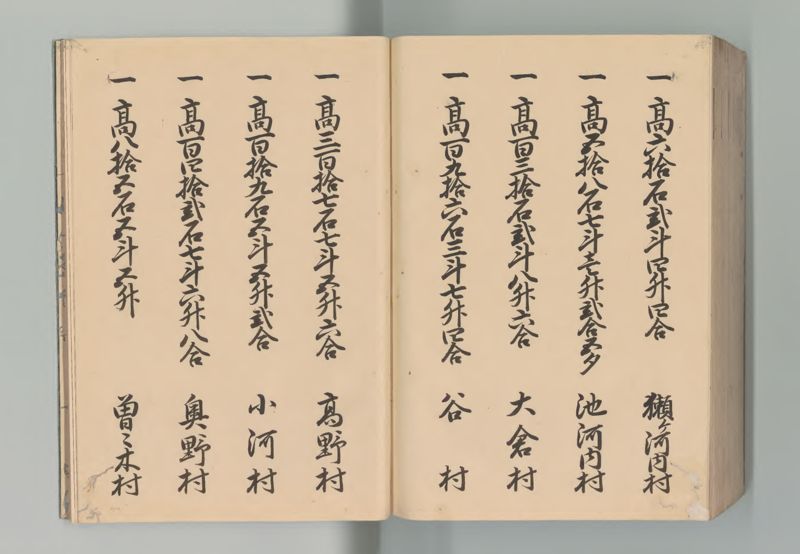 一 高六拾石弐斗四升四合 獺ケ河内村
一 高五拾八石七斗壱升弐合五夕 池河内村
一 高百三拾石弐斗八升六合 大倉村
一 高百九拾六石三斗七升四合 谷村
一 高三百拾七石七斗五升六合 高野村
一 高百拾九石五斗五升弐合 小河村
一 高百四拾弐石七斗六升八合 奥野村
一 高八拾五石五斗五升 曽々木村